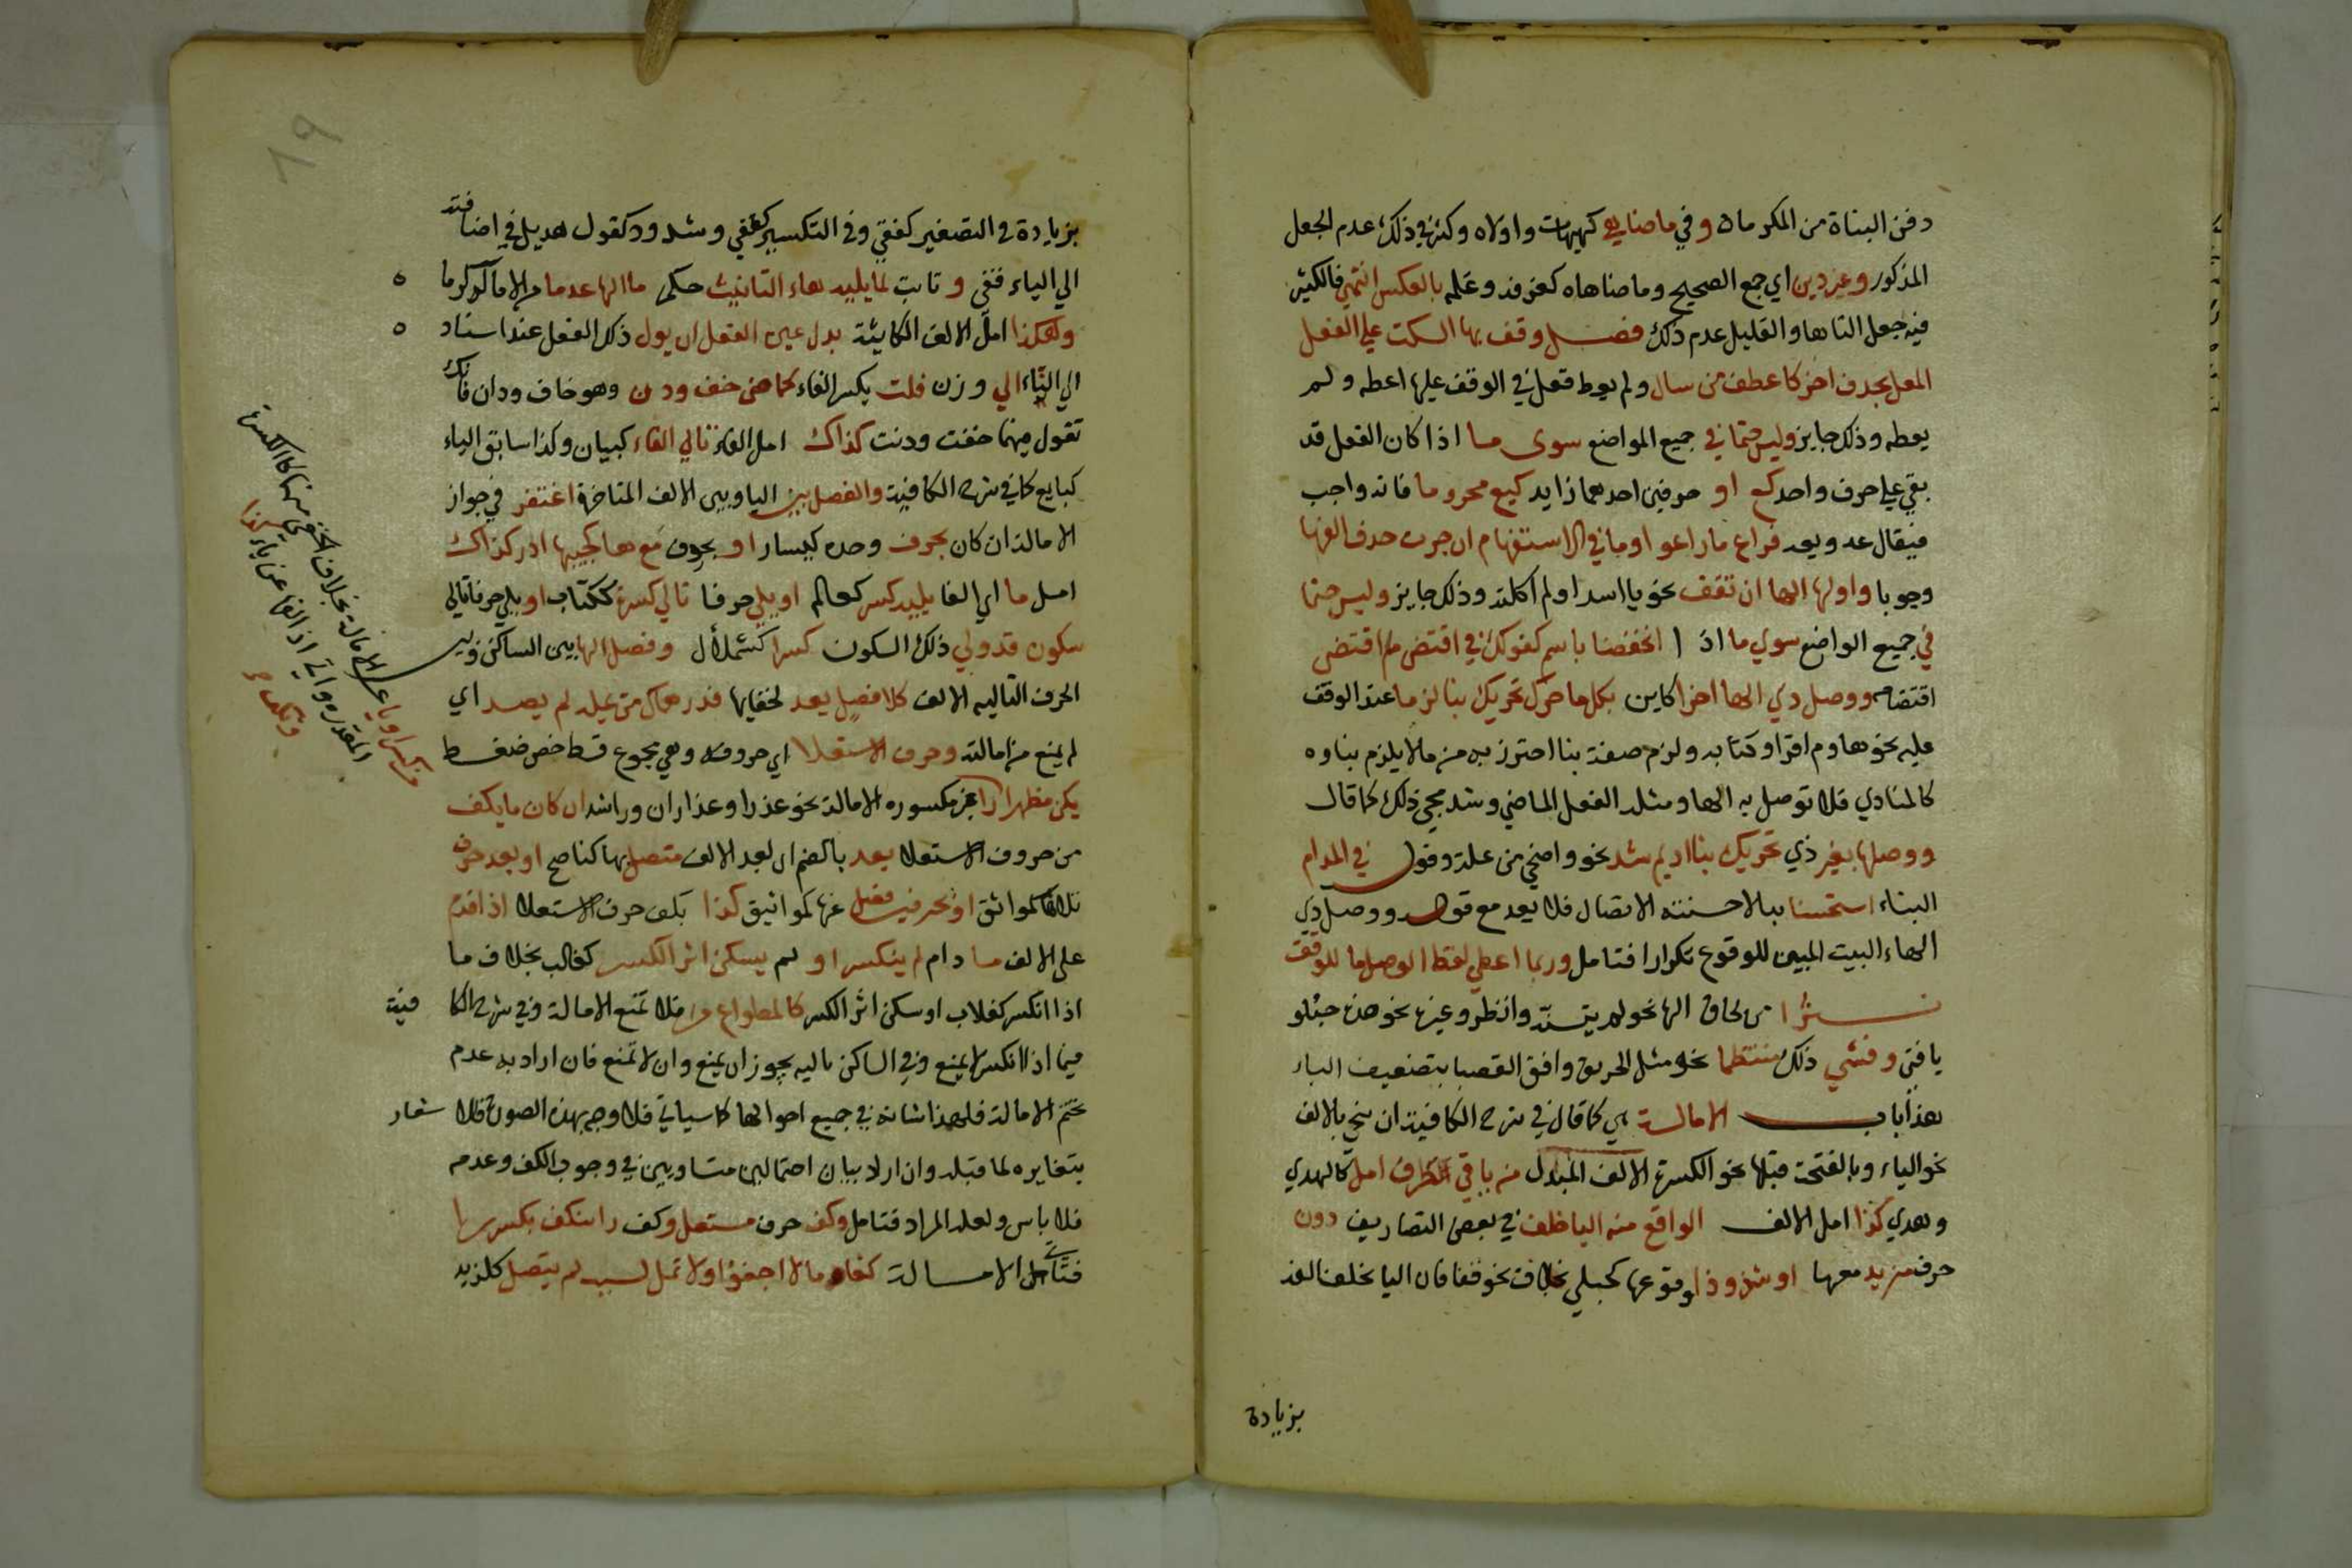 دفن البناة من المكرماه وفي ما ضاهي كهيهات واولاه وكثر في ذلك عدم الجعل
المذكور وغير ذين اي جمع الصحيح وما ضاهاه كغرفه وغلمه بالعكس انتمي فالكثير
فيه جعل التاها والقليل عدم ذلك فصل وقف بها السكت علي الفعل
المعل بحذف اخر كاعط من سال ولم يعط فتعل في الوقف عليها اعطه ولم
يعطه وذلك جايز وليس حتما في جميع المواضع سوى ما اذا كان الفعل قد
بقي علي حرف واحد كع او حرفين احدهما زايد كيع مجزوما فانه واجب
فيقال عه ويعه فراع ما راعوا وما في الاستفهام ان جرت حذف الفها
وجوبا واولها الها ان تقف نحو يا اسدا ولم اكلته وذلك جايز وليس حتما
في جميع المواضع سوي ما اذا انخفضا باسم كقولك في اقتضي م اقتضى
اقتضا مه ووصل ذي الها اخرا كاين بكل ما حرك تحريك بنا لزما عند الوقف
عليه نحو هاوم اقرا وكتابيه ولزم صفة بنا احترز به من ما لا يلزم بناوه
كالمنادي فلا توصل به الها ومثله الفعل الماضي وشد مجي ذلك كما قال
ووصلها بغير ذي تحريك بنا اديم شد نحو واضحي من عله وقوله في المدام
البناء استحسنا ببالاحسنته الاتصال فلا يعد مع قوله ووصل ذي
الهاء البيت المبين للوقوع تكرارا فتامل وربما اعطي لفظ الوصل ما للوقف
نثرا من لحاق الها نحو لم يتسنه وانظر وغيره نحو هذه حبلو
يا فتى وفشي ذلك منتظما نحو مثل الحريق وافق القصبا بتضعيف الباء
هذا باب الامالة هي كما قال في شرح الكافية ان ينحي بالالف
نحو الياء وبالفتحة قبلها نحو الكسرة الالف المبدل من يا في طرف امل كالهدي
وهدي كذا امل الالف الواقع منه اليا خلف في بعض التصاريف دون
حرف مزيد معها او شذوذ لوقوعها كحبلي بخلاف نحو قفا فان اليا تخلف الفه
بزيادة
٨٩
بزيادة في التصغير كقفي وفي التكسير كقفي وشذوذ كقول هذيل في اضافته
الي الياء قفي وثابت لما يليه هاء التانيث حكم ما الها عدما من الامالة كرما
وهكذا امل الالف الكاينة بدل عين الفعل ان يول ذلك الفعل عند اسناده
الي التاء الي وزن فلت بكسر الفاء كماضي خف ودن وهو خاف ودان فانك
تقول فيهما خفت ودنت كذاك امل الفاء تالي الفاء كبيان وكذا سابق الياء
كبايع كما في شرح الكافية والفصل بين اليا وبين الالف المتاخرة اغتفر في جواز
الامالة ان كان بحرف وحده كيسار او بحرف مع ها كجيبها ادر كذاك
امل ما اي الفا يليه كسر كعالم او يلي حرفا تالي كسر ككتاب او يلي حرفا تالي
سكون قد ولي ذلك السكون كسرا كشملال وفصل الها بين الساكن وبين
الحرف التاليه الالف كلا فصل يعد لخفايها فدرهماك من يمله لم يصد اي
لم يمنع من امالته وحرف الاستعلا اي حروفه وهي مجموع قسط خص ضغط
يكف مظهرا را غير مكسوره الامالة نحو عذرا وعذاران وراشد ان كان ما يكف
من حروف الاستعلا بعد بالضم اي بعد الالف متصل بها كناصح او بعد حرف
تلاها كمواثق او بحرفين فصل عنها كمواثيق كذا يكف حرف الاستعلا اذا قدم
على الالف ما دام لم ينكسر او لم يسكن اثر الكسر كغالب بخلاف ما
اذا انكسر كغلاب او سكن اثر الكسر كالمطواع مر فلا تمنع الامالة وفي شرح الكافية
فيما اذا انكسر لا يمنع وفي الساكن تاليه يجوز ان يمنع وان لا تمنع فان اراد به عدم
تحتم الامالة فلهذا شانه في جميع احوالها كما سياتي فلا وجه بهذه الصورة فلا شعار
بتغايره لما قبله وان اراد بيان احتمالين متساويين في وجوب الكف وعدمه
فلا باس ولعله المراد فتامل وكف حرف مستعل وكف را ينكف بكسر را
فتاتي الامالة كغارما لا اجفو ولا تمل لسبب لم يتصل كلزيد